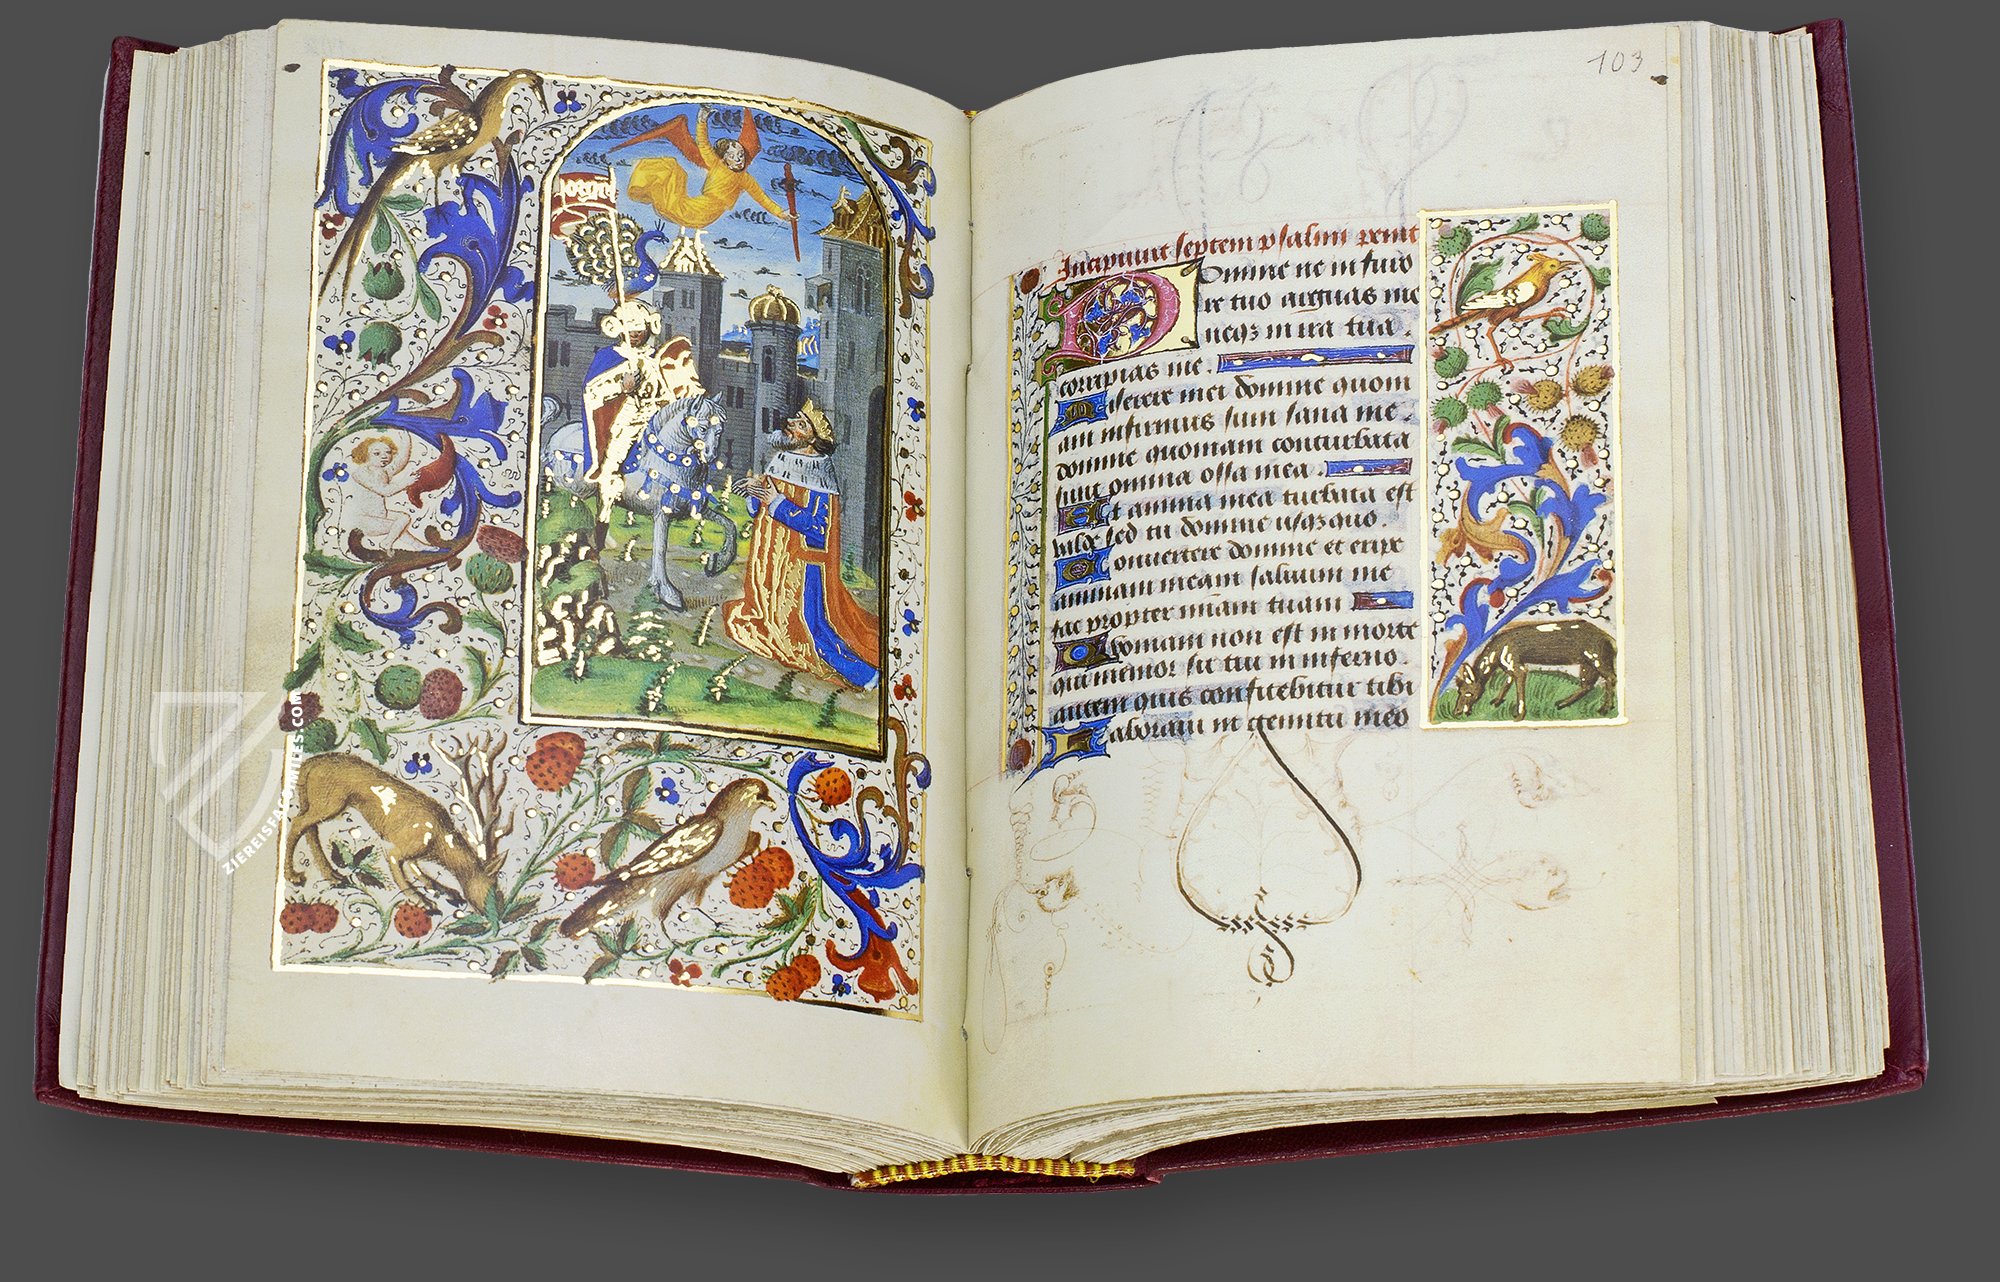 ZIEREISFACSIMILES.COM
103
Incipiunt septem psalmi penit
Domine ne in furo
re tuo arguas me
neqz in ira tua.
corripias me.
Miserere mei domine quom
am infirmus sum sana me.
domine quoniam conturbata
sunt omnia ossa mea.
Et anima mea turbata est
valde sed tu domine usqzquo.
Convertere domine et eripe
animam meam salvum me
fac propter miam tuam
Quoniam non est in morte
qui memor sit tui in inferno.
autem quis confitebitur tibi
Laboravi in gemitu meo